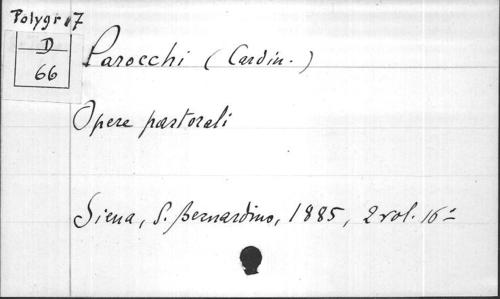 Polygr 17
D
66
Parocchi (Cardin.)
Opere pastorali
Siena, S. Bernardino, 1885, 2 vol. 16°